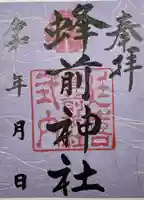 奉拝
蜂前神社
令和
年
月
日